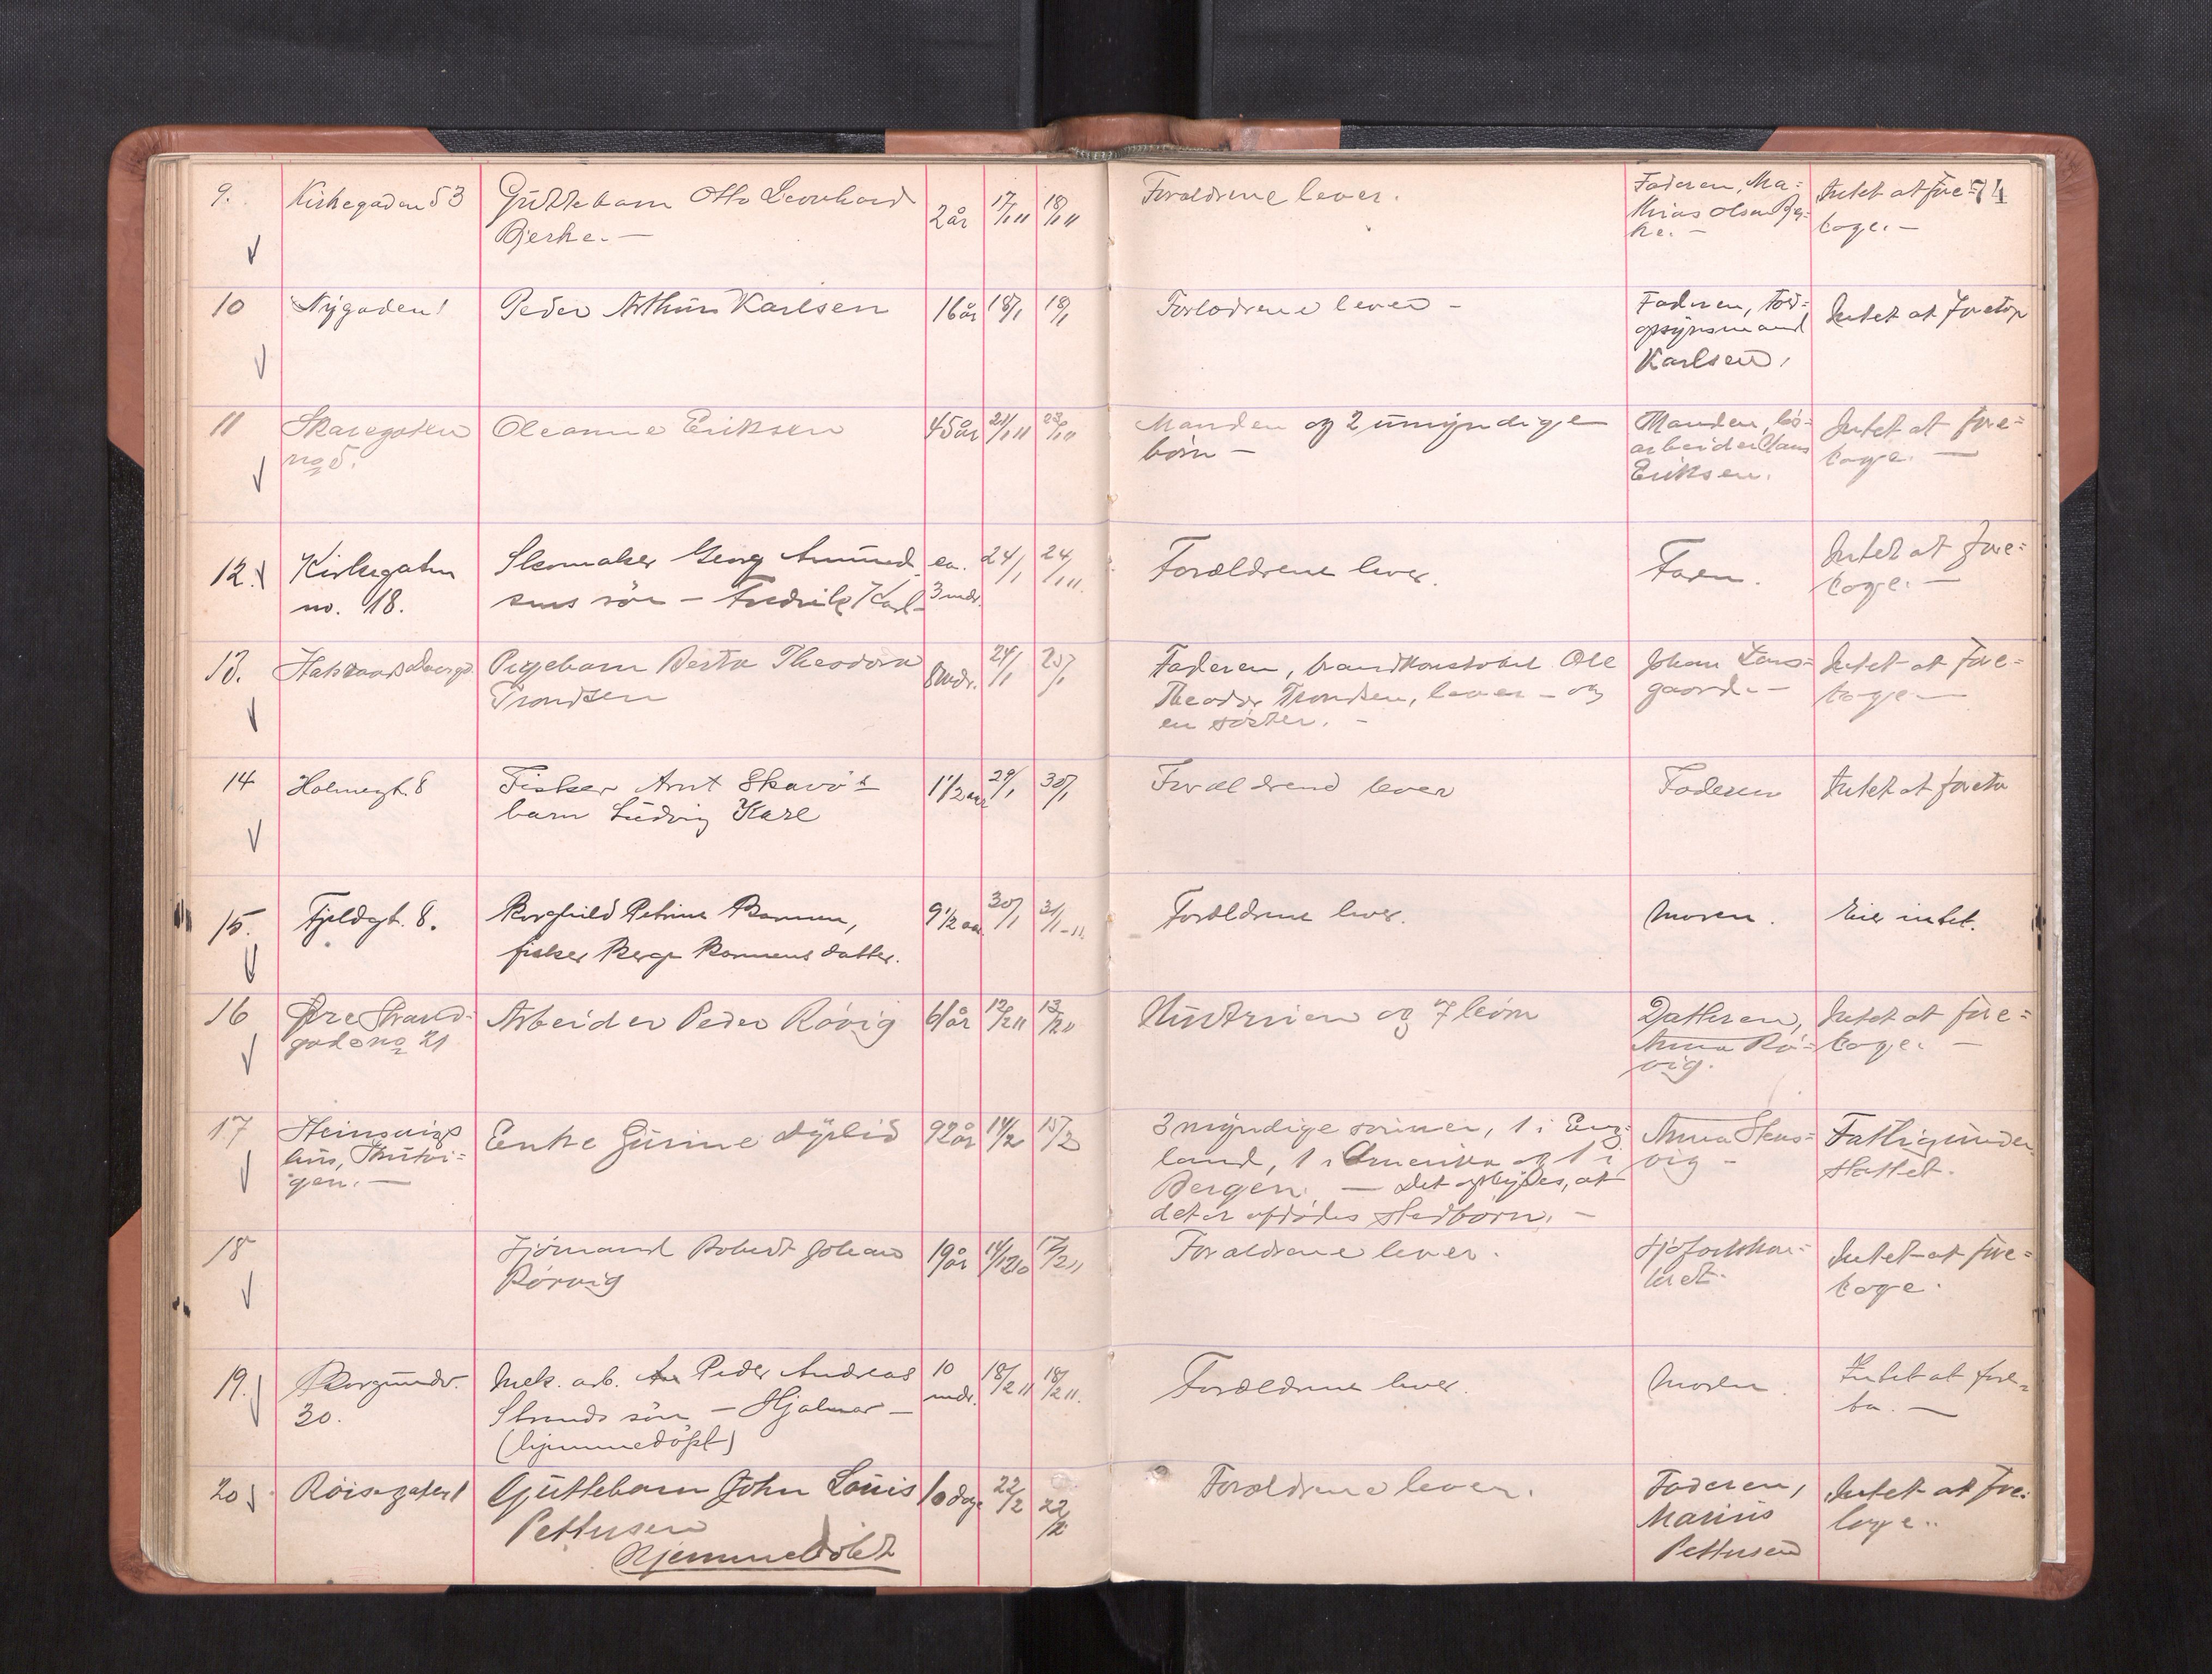 74
9. Kirkegaden 53 Guttebarn Otto Leonhard 2 år 17/1 11 18/1 11 Forældrene lever. Faderen, Ma-
Bjerke. — thias Olsen Bjer- Intet at fore-
ke. — tage. —
10 Nygaden 1 Peder Arthur Karlsen 16 år 18/1 18/1 Forældrene lever — Faderen, told-
opsynsmand Intet at foretage
Karlsen.
11 Skaregaten Oleanne Eriksen 45 år 21/1 11 23/1 11 Manden og 2 umyndige Manden, løs- Intet at fore-
no 5. børn — arbeider Hans tage. —
Eriksen.
12. Kirkegaten Skomaker Georg Amund- ca. 24/1 24/1 11 Forældrene lever. Faren. Intet at fore-
no. 18. sens søn — Fredrik Karl — 3 mdr. tage. —
13. Pigebarn Berta Theodora 8 mdr. 24/1 25/1 Faderen, brandkonstabel Ole Johan Intet at fore-
Trondsen Theodor Trondsen, lever — og gaard. — tage —
en søster. —
14 Holmegt. 8 Fisker Arnt Skavø's 1 1/2 aar 29/1 30/1 Forældrene lever Faderen Intet at foreta
barn Ludvig Karl
15. Fjeldgt. 8. Borghild Petrine 9 1/2 aar 30/1 31/1 - 11. Forældrene lever. Moren. Eier intet.
fisker datter.
16 Øvre Strand- Arbeider Peder Røvig 61 år 12/2 11 13/2 11 Hustruen og 7 børn Datteren, Intet at fore-
gade no 21 Anna Rø- tage. —
vig.
17 Heinsvigs Enke Gurine Dyrlid 92 år 14/2 15/2 3 myndige sønner, 1 i Eng- Anna Stens- Fattigunder-
hus, Skutvi- land, 1 i Amerika og 1 i vig — støttet.
gen. — Bergen. — Det oplyses, at
det er afdødes stedbørn. —
18 Sjømand Robert Johan 19 år 17/2 11 Forældrene lever. Sjøforklar- Intet at fore-
Rørvig tage.
19. Borgundv. Mek. arb. Peder Andreas 10 18/2 11 18/2 11. Forældrene lever. Moren. Intet at fore-
30. Strands søn — Hjalmar — mdr. ta. —
(hjemmedøpt)
20 Røisegaten 1 Guttebarn John Louis 10 dage 22/2 22/2 Forældrene lever. Faderen, Intet at fore-
Pettersen Marius tage.
Hjemmedøbt Pettersen